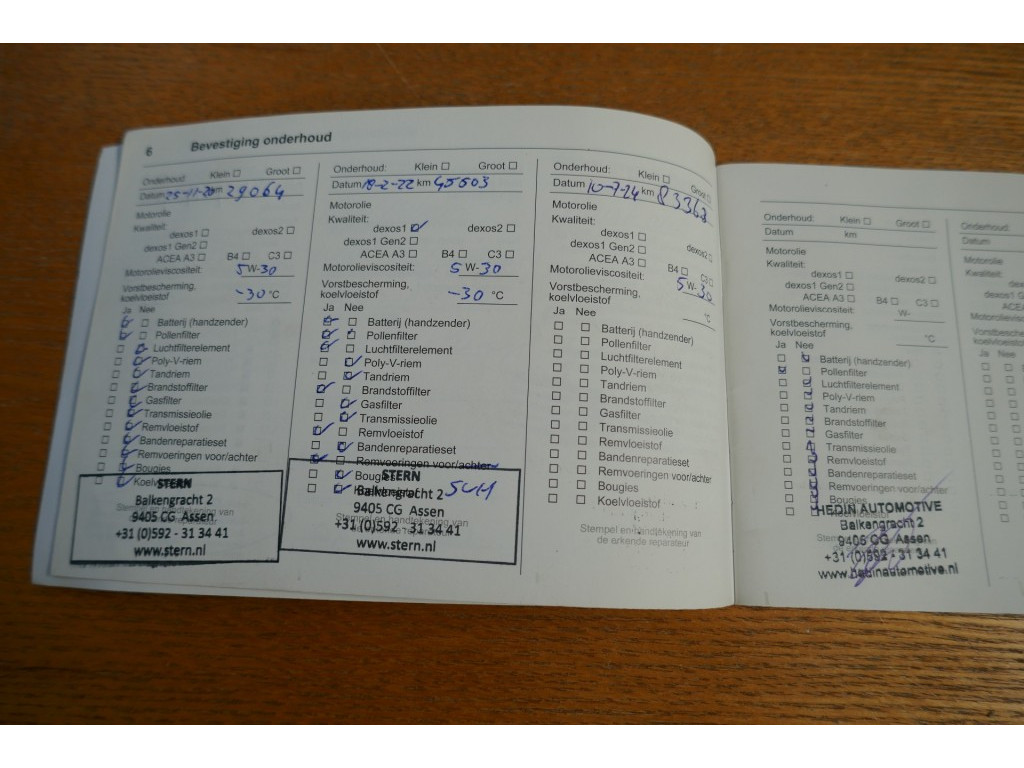 6 Bevestiging onderhoud
Onderhoud: Klein Groot
Datum 25-11-20 km 29064
Motorolie
Kwaliteit:
dexos1 dexos2
dexos1 Gen2
ACEA A3 B4 C3
Motorolieviscositeit: 5 W-30
Vorstbescherming,
koelvloeistof -30 °C
Ja Nee
Batterij (handzender)
Pollenfilter
Luchtfilterelement
Poly-V-riem
Tandriem
Brandstoffilter
Gasfilter
Transmissieolie
Remvloeistof
Bandenreparatieset
Remvoeringen voor/achter
Bougies
STERN
Balkengracht 2
9405 CG Assen
+31 (0)592 - 31 34 41
www.stern.nl
Onderhoud: Klein Groot
Datum 18-2-22 km 45503
Motorolie
Kwaliteit:
dexos1 dexos2
dexos1 Gen2
ACEA A3 B4 C3
Motorolieviscositeit: 5 W-30
Vorstbescherming,
koelvloeistof -30 °C
Ja Nee
Batterij (handzender)
Pollenfilter
Luchtfilterelement
Poly-V-riem
Tandriem
Brandstoffilter
Gasfilter
Transmissieolie
Remvloeistof
Bandenreparatieset
Remvoeringen voor/achter
Bougies
STERN
Balkengracht 2
9405 CG Assen
+31 (0)592 - 31 34 41
www.stern.nl
Onderhoud: Klein Groot
Datum 10-7-24 km 83368
Motorolie
Kwaliteit:
dexos1 dexos2
dexos1 Gen2
ACEA A3 B4 C3
Motorolieviscositeit: 5 W-30
Vorstbescherming,
koelvloeistof °C
Ja Nee
Batterij (handzender)
Pollenfilter
Luchtfilterelement
Poly-V-riem
Tandriem
Brandstoffilter
Gasfilter
Transmissieolie
Remvloeistof
Bandenreparatieset
Remvoeringen voor/achter
Bougies
Koelvloeistof
Stempel en handtekening van
de erkende reparateur
Onderhoud: Klein Groot
Datum km
Motorolie
Kwaliteit:
dexos1 dexos2
dexos1 Gen2
ACEA A3 B4 C3
Motorolieviscositeit: W-
Vorstbescherming,
koelvloeistof °C
Ja Nee
Batterij (handzender)
Pollenfilter
Luchtfilterelement
Poly-V-riem
Tandriem
Brandstoffilter
Gasfilter
Transmissieolie
Remvloeistof
Bandenreparatieset
Remvoeringen voor/achter
Bougies
HEDIN AUTOMOTIVE
Balkengracht 2
9405 CG Assen
+31 (0)592 - 31 34 41
www.hedinautomotive.nl
Onderhoud:
Datum
Motorolie
Kwaliteit:
dexos1
dexos1 Gen2
ACEA A3
Vorstbescherming,
koelvloeistof
Ja Nee